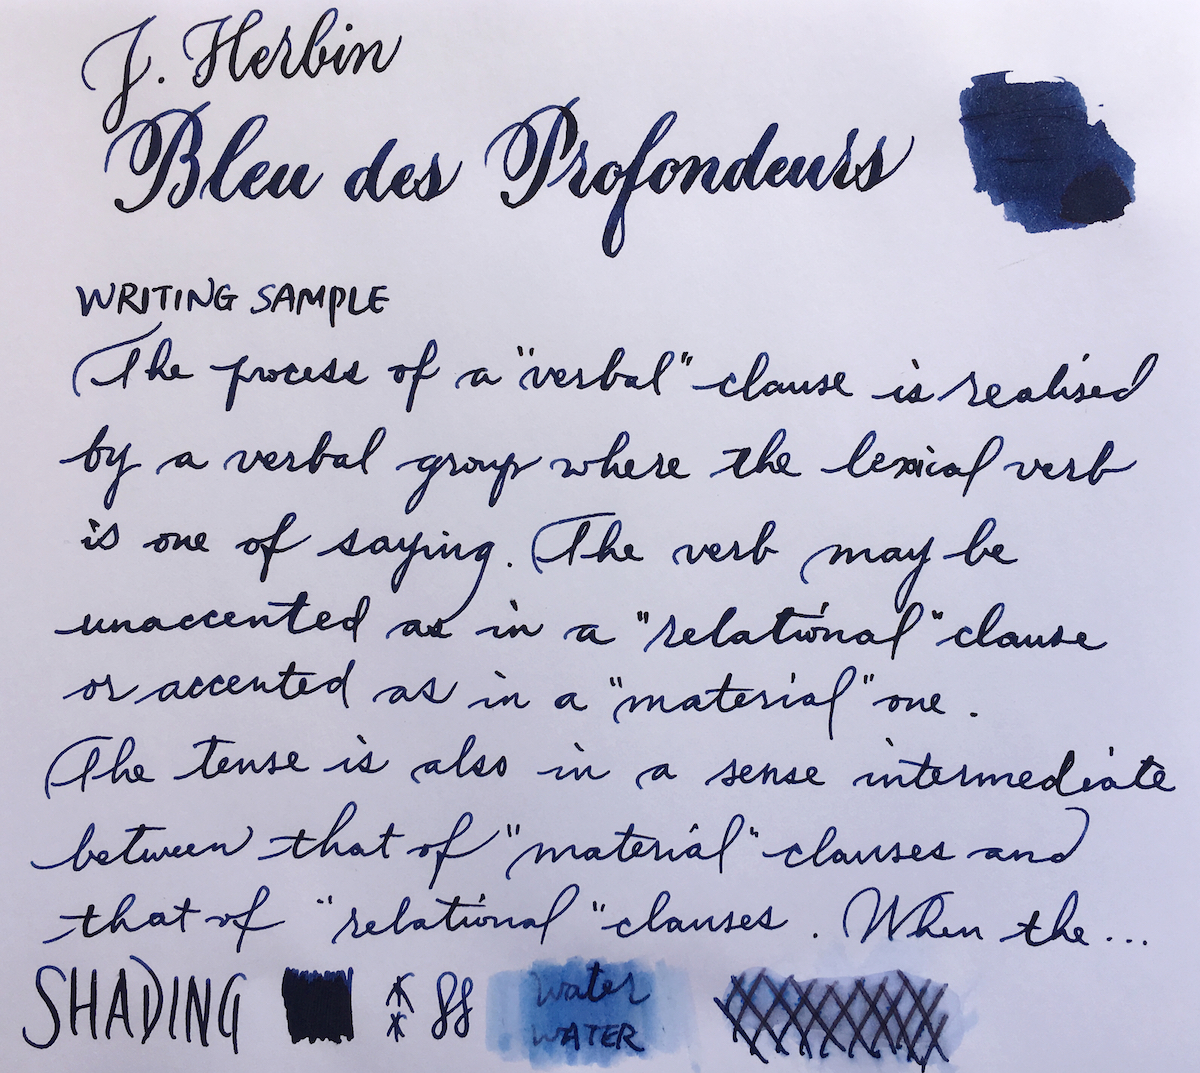 J. Herbin
Bleu des Profondeurs
WRITING SAMPLE
The process of a "verbal" clause is realised
by a verbal group where the lexical verb
is one of saying. The verb may be
unaccented as in a "relational" clause
or accented as in a "material" one.
The tense is also in a sense intermediate
between that of "material" clauses and
that of "relational" clauses. When the...
SHADING
water
WATER